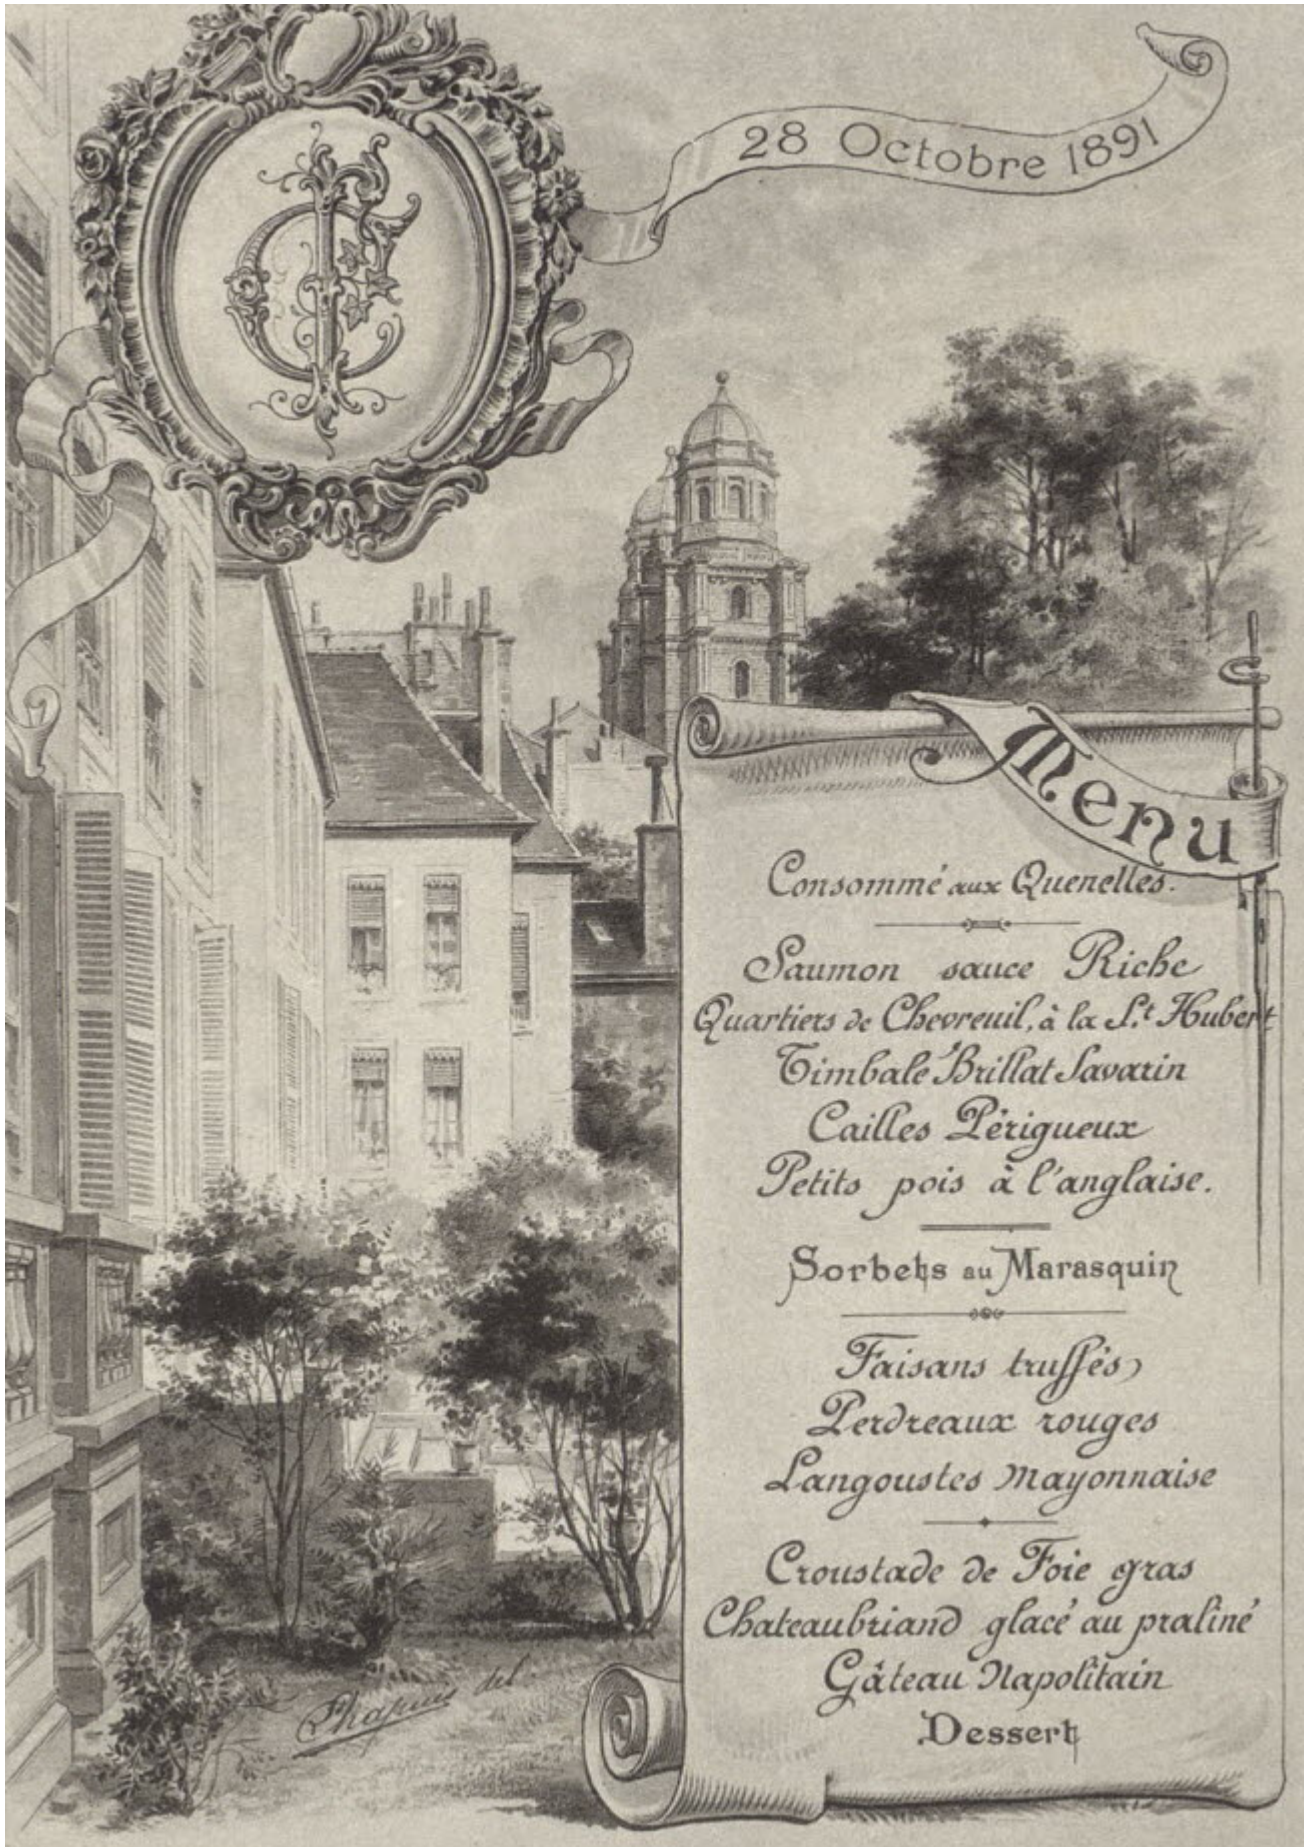 28 Octobre 1891
Menu
Consommé aux Quenelles.
Saumon sauce Riche
Quartiers de Chevreuil, à la S.t Hubert
Timbale Brillat Savarin
Cailles Périgueux
Petits pois à l'anglaise.
Sorbets au Marasquin
Faisans truffés
Perdreaux rouges
Langoustes Mayonnaise
Croustade de Foie gras
Chateaubriand glacé au praliné
Gâteau Napolitain
Dessert
del.